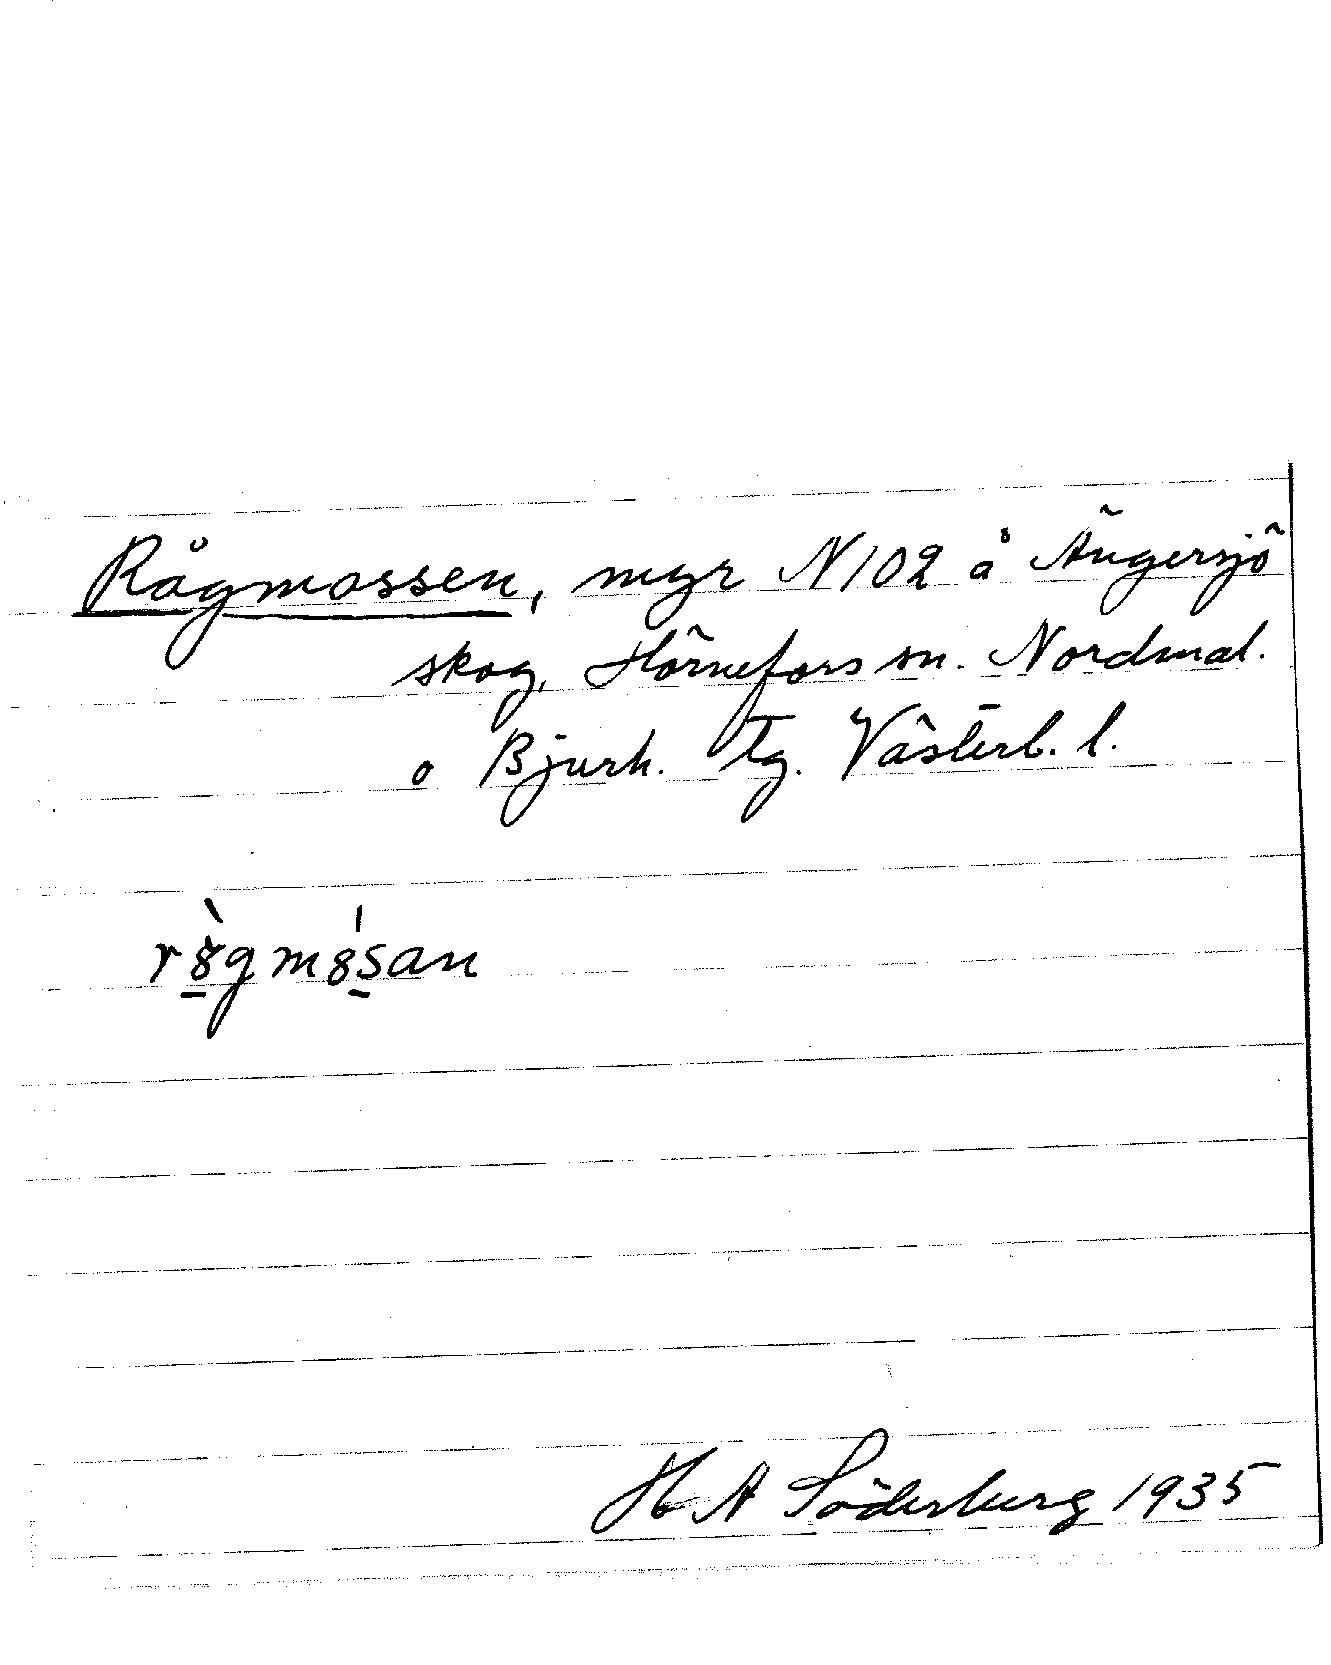 Rågmossen, myr N102 å Ängersjö
skog, Hörnefors sn. Nordmal.
o Bjurh. tg. Västerb. l.
r8̲̀gm8́s̲an
H A Söderberg 1935